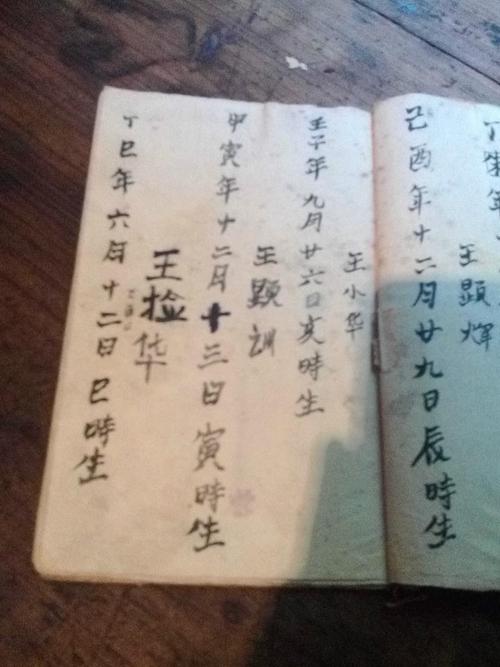 丁 年
王顕輝
己酉年十二月廿九日辰時生
王小华
壬子年九月廿六日亥時生
王顕訓
甲寅年十二月十三日寅時生
王捡华
丁巳年六月十二日巳時生